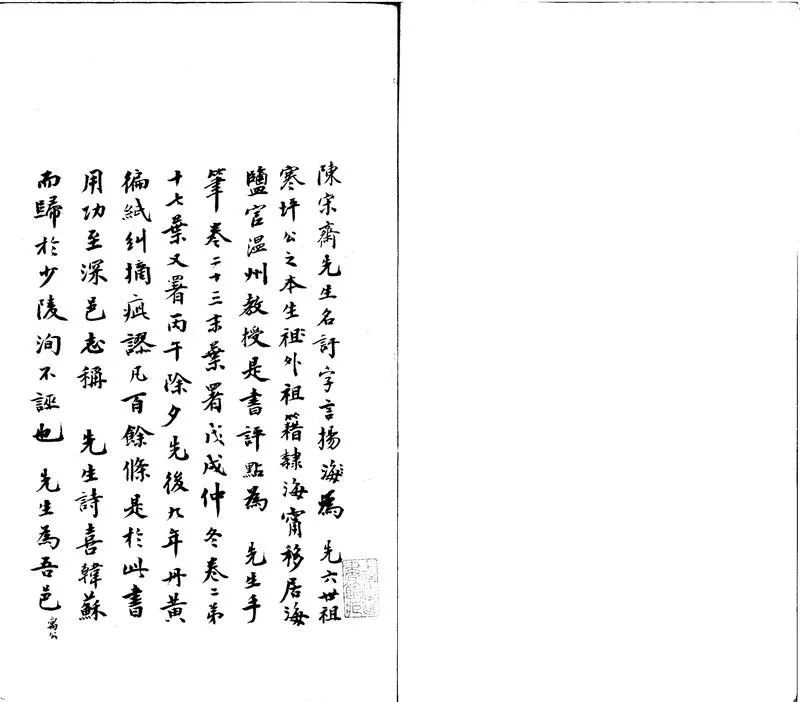 陳宋齋先生名訏字言揚海為　先六世祖
寒坪公之本生祖外祖籍隸海甯移居海
鹽官温州教授是書評點為　先生手
筆卷二十三末葉署戊戌仲冬卷二第
十七葉又署丙午除夕先後九年丹黃
徧紙糾摘疵謬凡百餘條是於此書
用功至深邑志稱　先生詩喜韓蘇
而歸於少陵洵不誣也　先生為吾邑